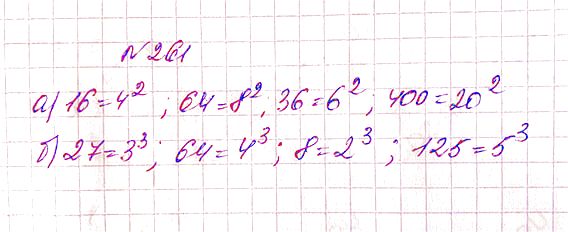 №261
а) 16=4²; 64=8², 36=6²; 400=20²
б) 27=3³; 64=4³; 8=2³; 125=5³